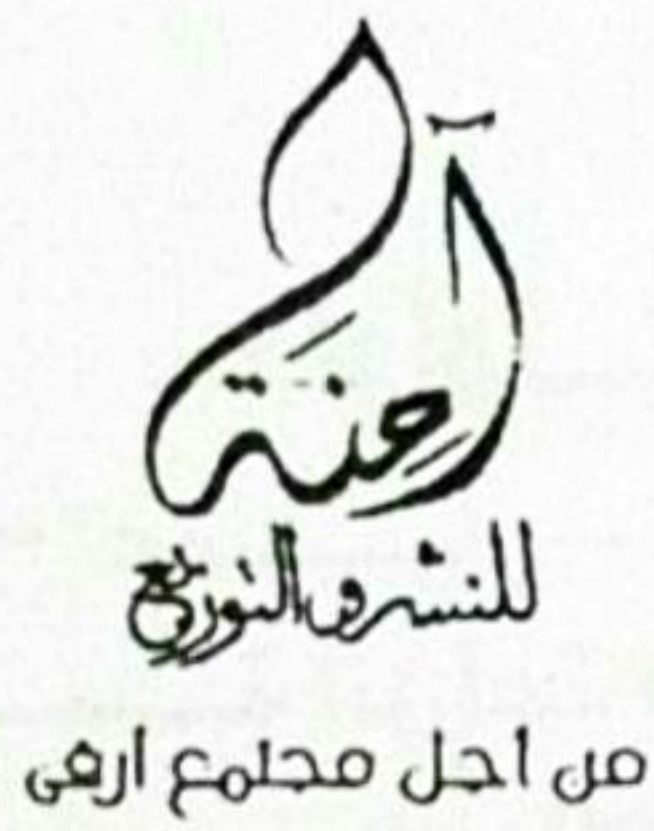 آمِنَة
للنشر والتوزيع
من اجل مجتمع ارقى